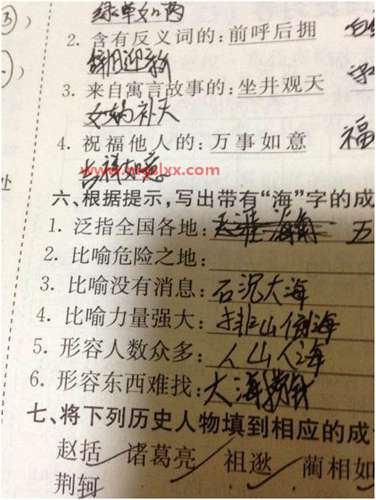 绿草如茵
2. 含有反义词的:前呼后拥
辞旧迎新
3. 来自寓言故事的:坐井观天
女娲补天
4. 祝福他人的:万事如意 福
吉祥如意
处
六、根据提示,写出带有“海”字的成
1. 泛指全国各地: 五
2. 比喻危险之地:
3. 比喻没有消息:石沉大海
4. 比喻力量强大:排山倒海
5. 形容人数众多:人山人海
6. 形容东西难找:大海捞针
七、将下列历史人物填到相应的成
赵括 诸葛亮 祖逖 蔺相如
荆轲